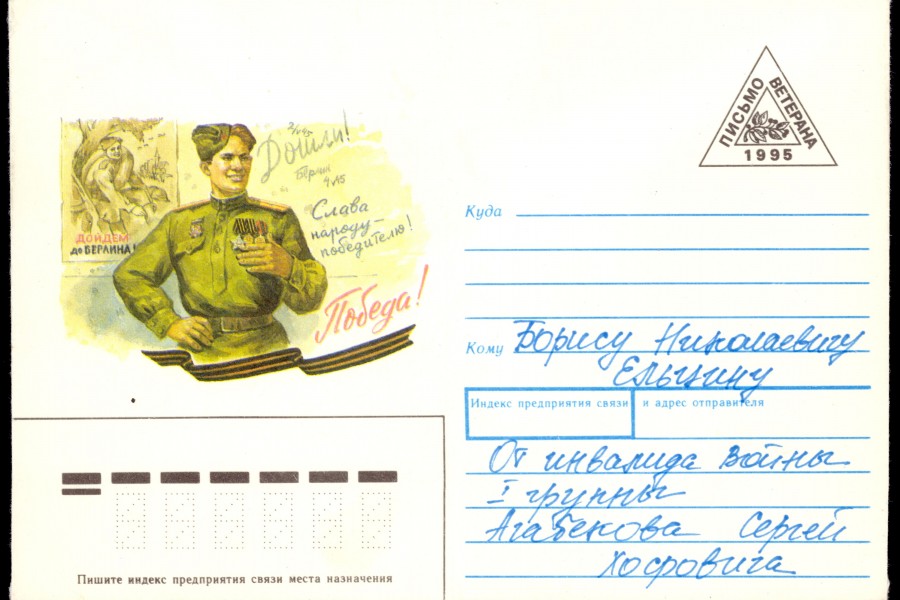 ПИСЬМО ВЕТЕРАНА
1995
Дошли!
Берлин
4.V.45
Слава
народу-
победителю!
ДОЙДЕМ
до БЕРЛИНА!
Победа!
Куда
Кому Борису Николаевичу
Ельцину
Индекс предприятия связи и адрес отправителя
От инвалида войны
I группы
Агабекова Сергей
Хосровича
Пишите индекс предприятия связи места назначения